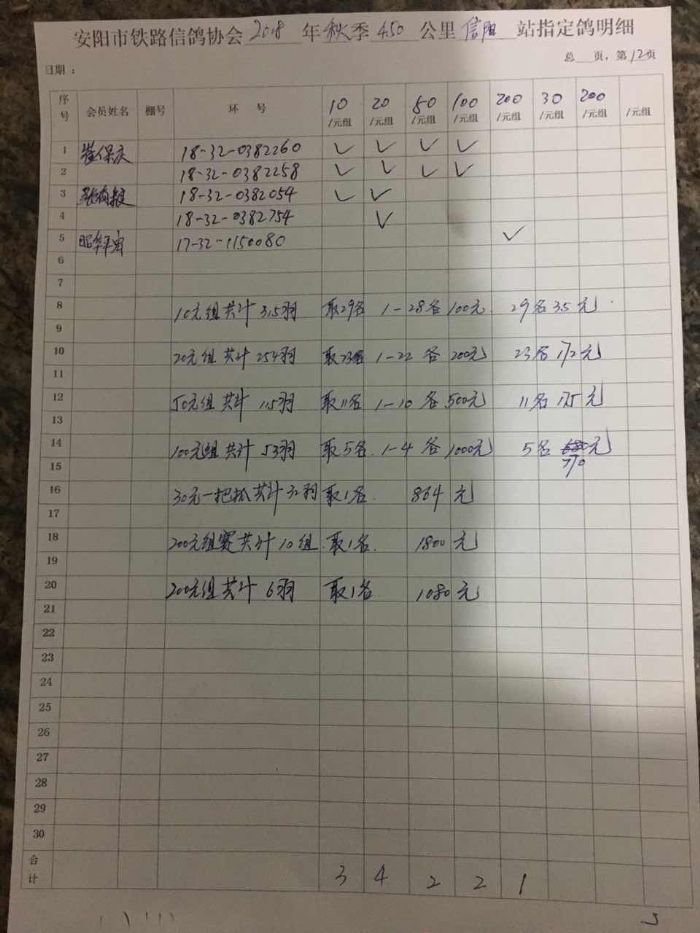 安阳市铁路信鸽协会 2018 年 秋季 450 公里 信阳 站指定鸽明细
日期: 总 页,第12页
序号 会员姓名 棚号 环 号 10/元组 20/元组 50/元组 100/元组 200/元组 30/元组 200/元组 /元组
1 崔保庆 18-32-0382260 ✓ ✓ ✓ ✓
2 18-32-0382258 ✓ ✓ ✓ ✓
3 18-32-0382054 ✓ ✓
4 18-32-0382754 ✓
5 17-32-1150080 ✓
6
7
8 10元组共计 315羽 取29名 1-28名 各100元. 29名 35元
9
10 20元组共计 254羽 取23名 1-22 各 200元 23名 172元
11
12 50元组 共计 115羽 取11名 1-10 各500元 11名 175元
13
14 100元组 共计 53羽 取5名. 1-4 各 1000元 5名 770元
15
16 30元一把抓共计32羽 取1名. 864 元
17
18 200元组赛共计10组. 取1名. 1800元
19
20 200元组共计 6羽 取1名 1080元
21
22
23
24
25
26
27
28
29
30
合计 3 4 2 2 1